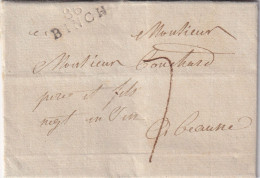 86
BINCH
Monsieur
Monsieur Bouchard
pere et fils
negt en Vin
à Beaune